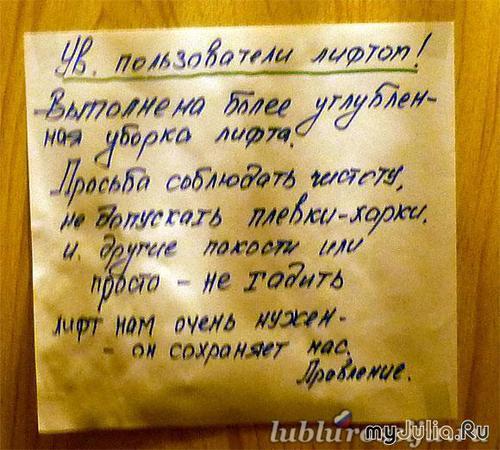 Ув. пользователи лифтом!
Выполнена более углублен-
ная уборка лифта.
Просьба соблюдать чистоту,
не допускать плевки-харки.
и другие пакости или
просто - не гадить
лифт нам очень нужен-
- он сохраняет нас.
Правление.
myJulia.Ru